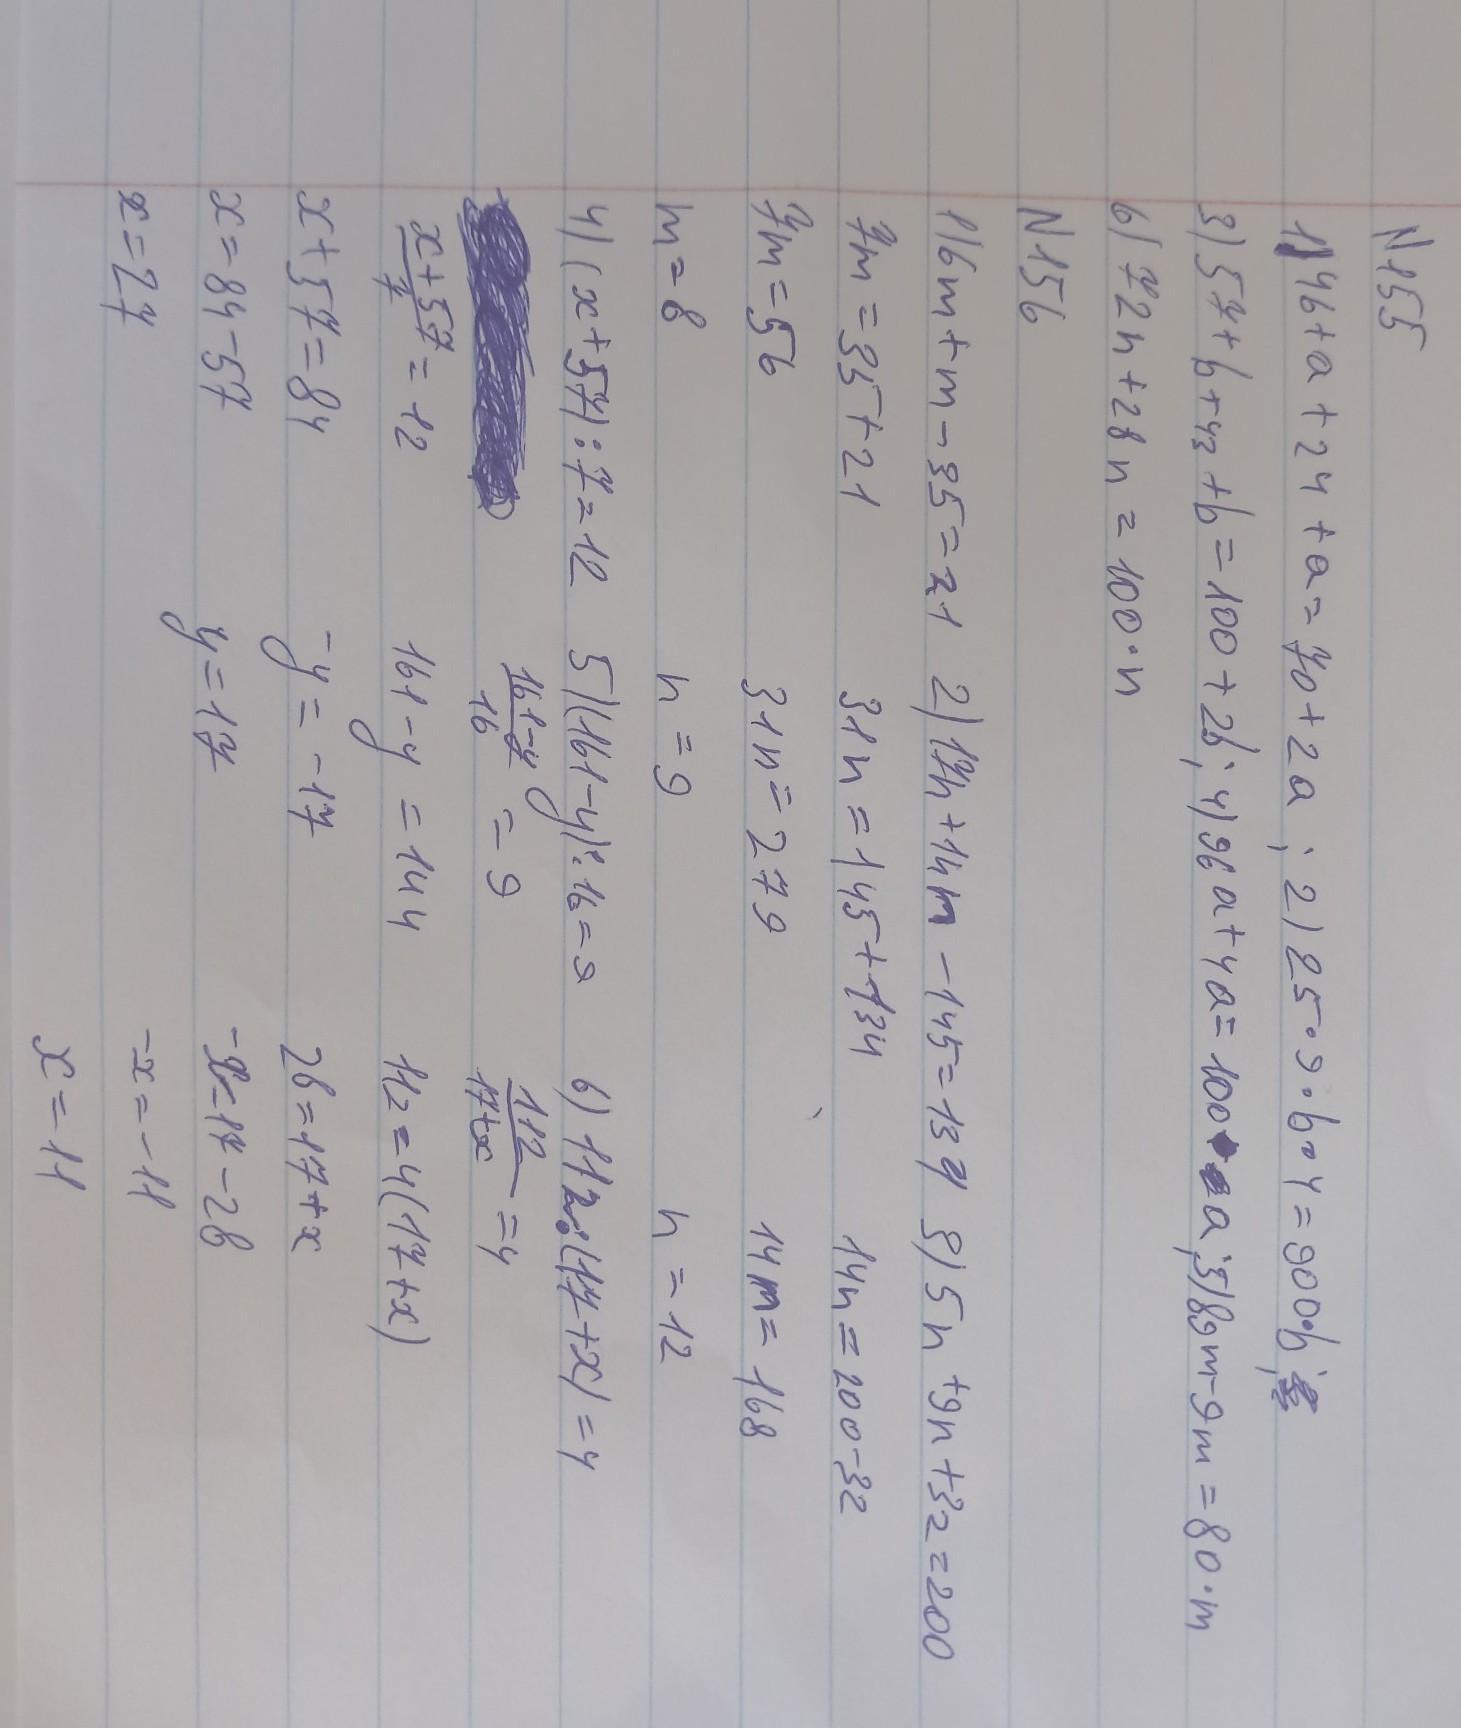 N155
1) 46+a+24+a=70+2a; 2) 25·9·b·4=900b;
3) 57+b+43+b=100+2b; 4) 96a+4a=100·a; 5) 89m-9m=80·m
6) 72n+28n=100·n
N156
1) 6m+m-35=21 2) 17n+14n-145=134 3) 5n+9n+32=200
7m=35+21 31n=145+134 14n=200-32
7m=56 31n=279 14n=168
m=8 n=9 n=12
4) (x+57):7=12 5) (161-y):16=9 6) 112:(17+x)=4
(161-y)/16=9 112/(17+x)=4
(x+57)/7=12 161-y=144 112=4(17+x)
x+57=84 -y=-17 28=17+x
x=84-57 y=17 -x=17-28
x=27 -x=-11
x=11